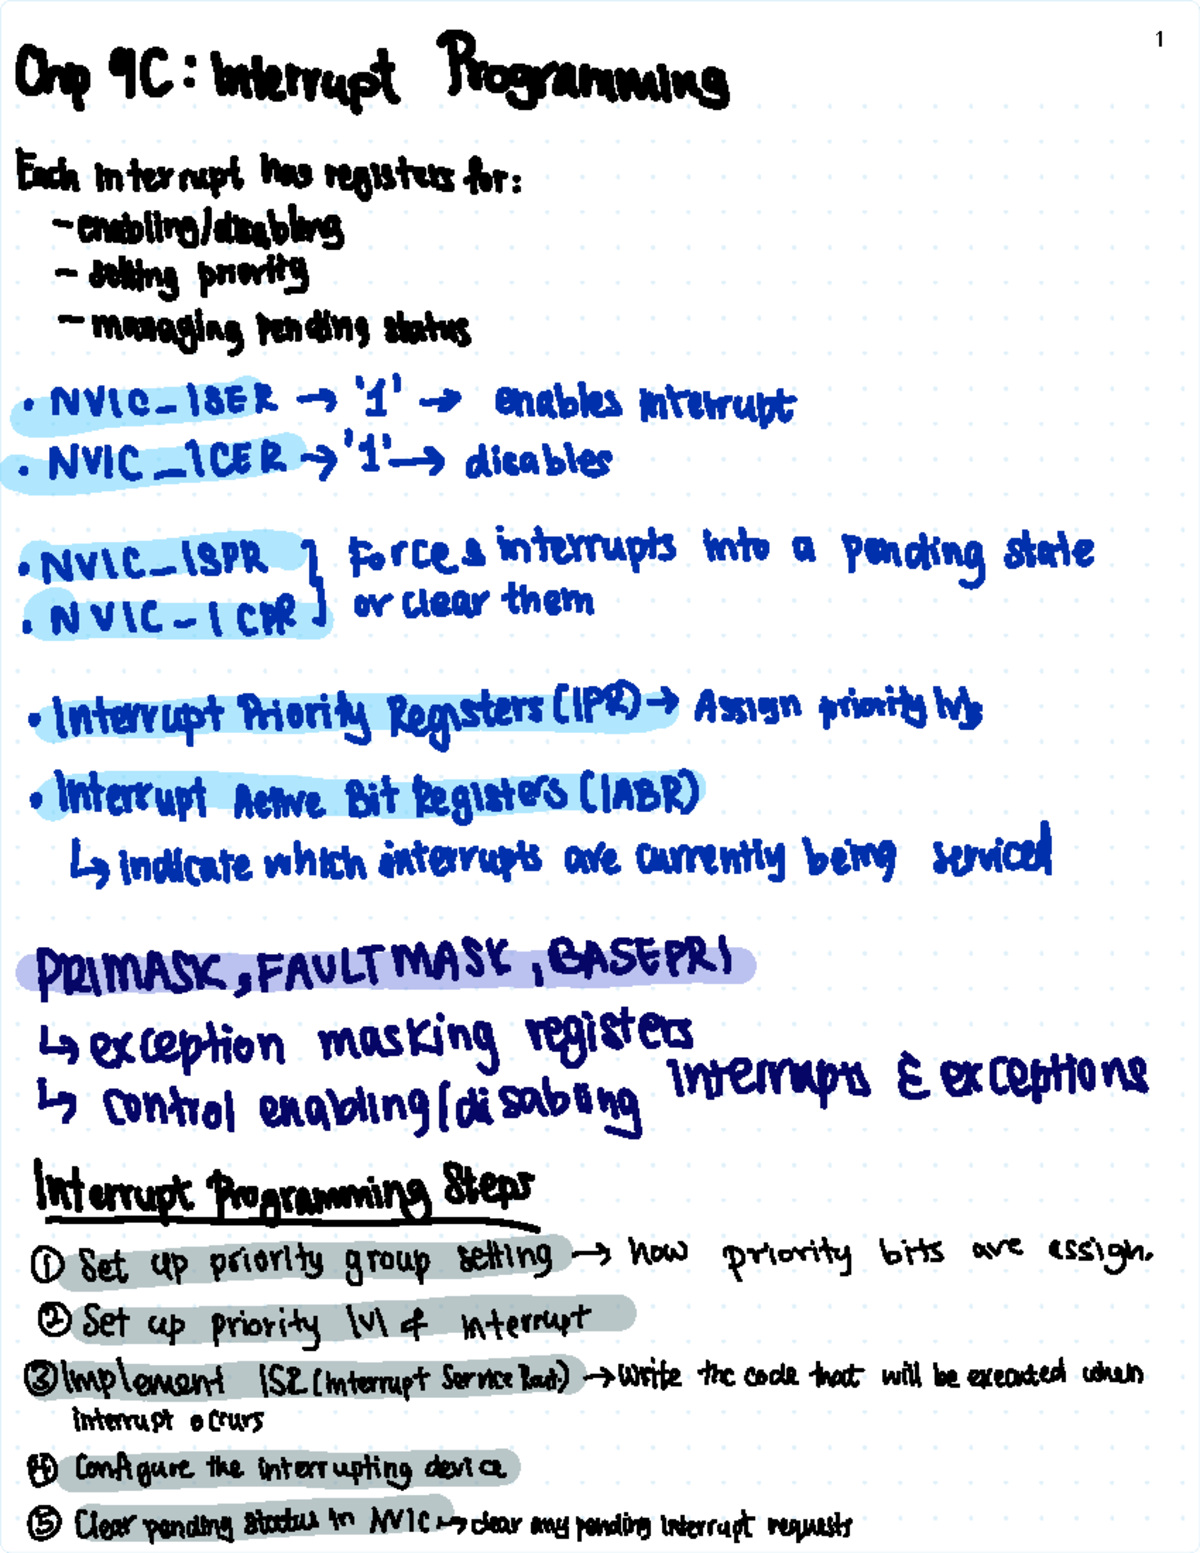 1
Chp 9C: Interrupt Programming
Each interrupt has registers for:
- enabling/disabling
- setting priority
- managing pending status
• NVIC_ISER → '1' → enables interrupt
• NVIC_ICER → '1' → disables
• NVIC_ISPR } Forces interrupts into a pending state
• NVIC_ICPR } or clear them
• Interrupt Priority Registers (IPR) → Assign priority lvls
• Interrupt Active Bit Registers (IABR)
↳ indicate which interrupts are currently being serviced
PRIMASK, FAULTMASK, BASEPRI
↳ exception masking registers
↳ control enabling/disabling interrupts & exceptions
Interrupt Programming Steps
① Set up priority group setting → how priority bits are assign.
② Set up priority lvl & interrupt
③ Implement ISR (Interrupt Service Rout.) → write the code that will be executed when
interrupt occurs
④ Configure the interrupting device
⑤ Clear pending status in NVIC → clear any pending interrupt requests